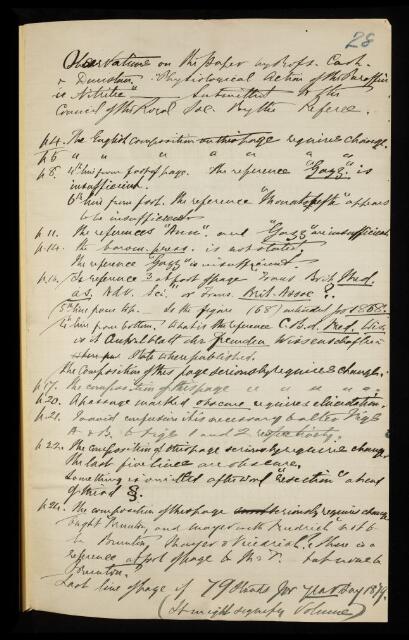 28
Observations on the Paper by Profs. Cash
& Dunstan "Physiological Action of the Paraffin
ic Nitrites" Submitted to the
Council of the Royal Soc. by the Referee.
p 4. The English composition on this page requires change.
p 5 " " " " " " "
p 8. 4th line from foot of page. The reference "Gazz" is
insufficient.
6th line from foot. The reference appears
to be insufficient
p. 11. The references and "Gazz" are insufficient
p. 14. the is not stated.
The reference "Gazz" is insufficient.
p. The reference 3 at foot of page Trans. Brit. Med.
as. Adv. Sci." or Trans. Brit. Assoc?.
5th line from top. Is the figure (68) intended for 1868.
line from bottom? What is the reference C.B.d. Med. Wis.
is it Centralblatt der Wissenschaften
State when published.
The Composition of this page seriously requires change.
p 17. The composition of this page " " " "
p. 20. A passage marked obscure requires elucidation.
p. 21. To avoid confusion it is necessary to alter Figs
A & B. to Figs 1 and 2 respectively.
p. 22. The composition of this page seriously requires change
The last five lines are obscure.
Something is omitted after word "section" ahead
of third §.
p. 24. The composition of this page seriously requires change
Ought Brunton, and Mayer with Friedrich not to
be Brunton, Mayer & Friedrich? There is a
reference at foot of page to M & F. but none to
Brunton.
Last line of page 79 Stands for year Day 1879.
(It might signify Volume)